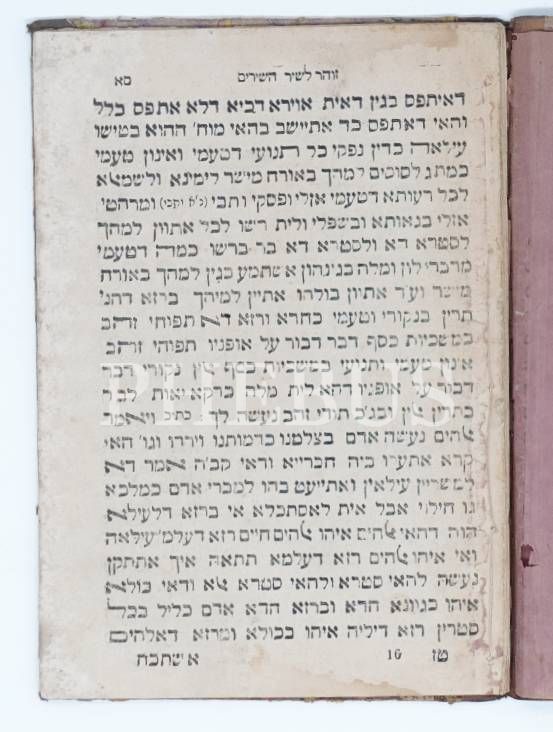 זוהר לשיר השירים סא
דאיתפס בגין דאית אוירא דביא דלא אתפס כלל
והאי דאתפס כד אתיישב בהאי מוח' ההוא בטישו
עילאה כדין נפקי כל תנועי דטעמי ואינון טעמי
כמתג לסוסים למהך באורח מישר לימינא ולשמאלא
לכל רעותא דטעמי אזלי ופסקי ותבי (נ"א יתבי) ומרהטי
אזלי בגאותא ובשפלי ולית רשו לכל אתוון למהך
לסטרא דא ולסטרא דא בר ברשו כמה דטעמי
מדברי לון ומלה בגינהון אשתמע בגין למהך באורח
מישר ועד אתיון בולהו אתיין למיהך ברזא דתני
תרין בנקודי וטעמי כחדא ורזא דא תפוחי זהב
במשכיות כסף דבר דבור על אופניו תפוחי זהב
אינון טעמי ותנועי במשכיות כסף אלין נקודי דבר
דבור על אופניו דהא לית מלה ברקא יאות לבר
בתרין אלין ובג"כ תורי זהב נעשה לך כתיב ויאמר
אלהים נעשה אדם בצלמנו כדמותנו וירדו וגו' האי
קרא אתערו ביה חברייא ודאי קב"ה אמר דא
למשריין עילאין ואתייעט בהו למברי אדם כמלכא
גו חילוי אבל אית לאסתכלא אי ברזא דלעילא
הוה דהאי אלהים איהו אלהים חיים רזא דעלמ' עילאה
ואי איהו אלהים רזא דעלמא תתאה איך אתתקן
נעשה להאי סטרא ולהאי סטרא אלא ודאי כולא
איהו כגוונא חדא וברזא הדא אדם כליל בכל
סטרין רזא דיליה איהו בכולא ומרזא דאלהים
טז 16 אשתכח
PHEBUS